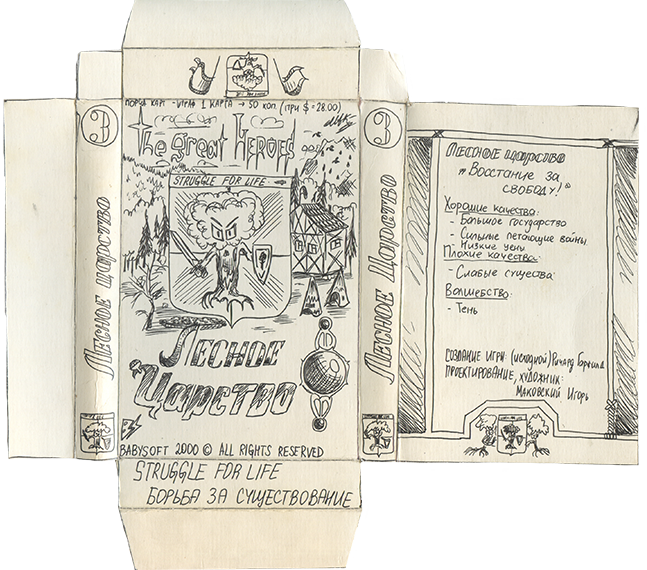 3
ЛЕСНОЕ ЦАРСТВО
ПОРЦИЯ КАРТ - ИГРА 1 КАРТА → 50 КОП. (ПРИ $ = 28.00)
The great HEROES
STRUGGLE FOR LIFE
ЛЕСНОЕ
ЦАРСТВО
BABYSOFT 2000 © ALL RIGHTS RESERVED
STRUGGLE FOR LIFE
БОРЬБА ЗА СУЩЕСТВОВАНИЕ
3
ЛЕСНОЕ ЦАРСТВО
ЛЕСНОЕ ЦАРСТВО
„ВОССТАНИЕ ЗА
СВОБОДУ!"
Хорошие качества:
- Большое государство
- Сильные летающие войны
Низкие цены
Плохие качества:
- Слабые существа
Волшебство:
- Тень
СОЗДАНИЕ ИГРЫ: (исходной) Ричард
ПРОЕКТИРОВАНИЕ, ХУДОЖНИК:
МАКОВСКИЙ ИГОРЬ